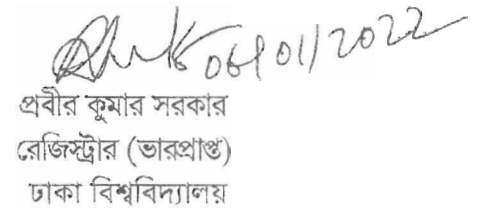 06/01/2022
প্রবীর কুমার সরকার
রেজিস্ট্রার (ভারপ্রাপ্ত)
ঢাকা বিশ্ববিদ্যালয়